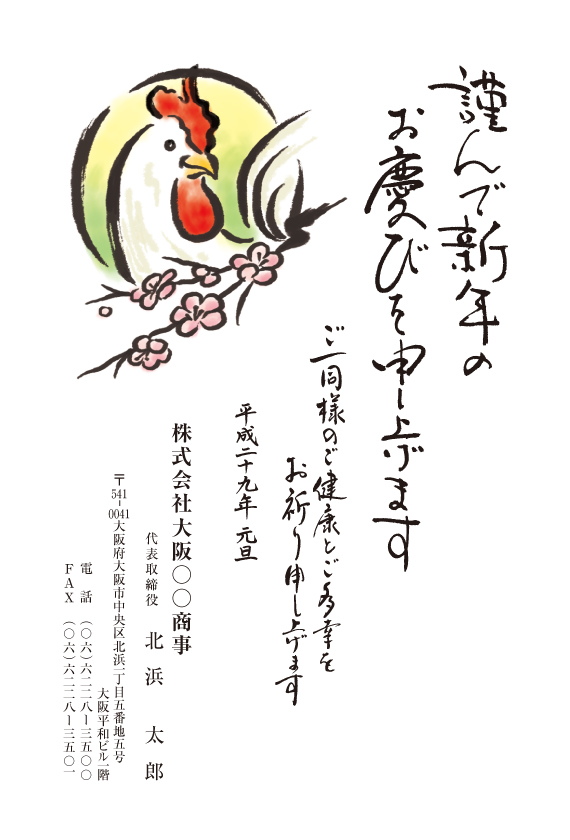 謹んで新年の
お慶びを申し上げます
ご一同様のご健康とご多幸を
お祈り申し上げます
平成二十九年 元旦
株式会社大阪〇〇商事
代表取締役 北浜 太郎
〒541-0041大阪府大阪市中央区北浜二丁目五番地五号
大阪平和ビル一階
電話 (〇六)六二二八ー三五〇〇
FAX (〇六)六二二八ー三五〇一